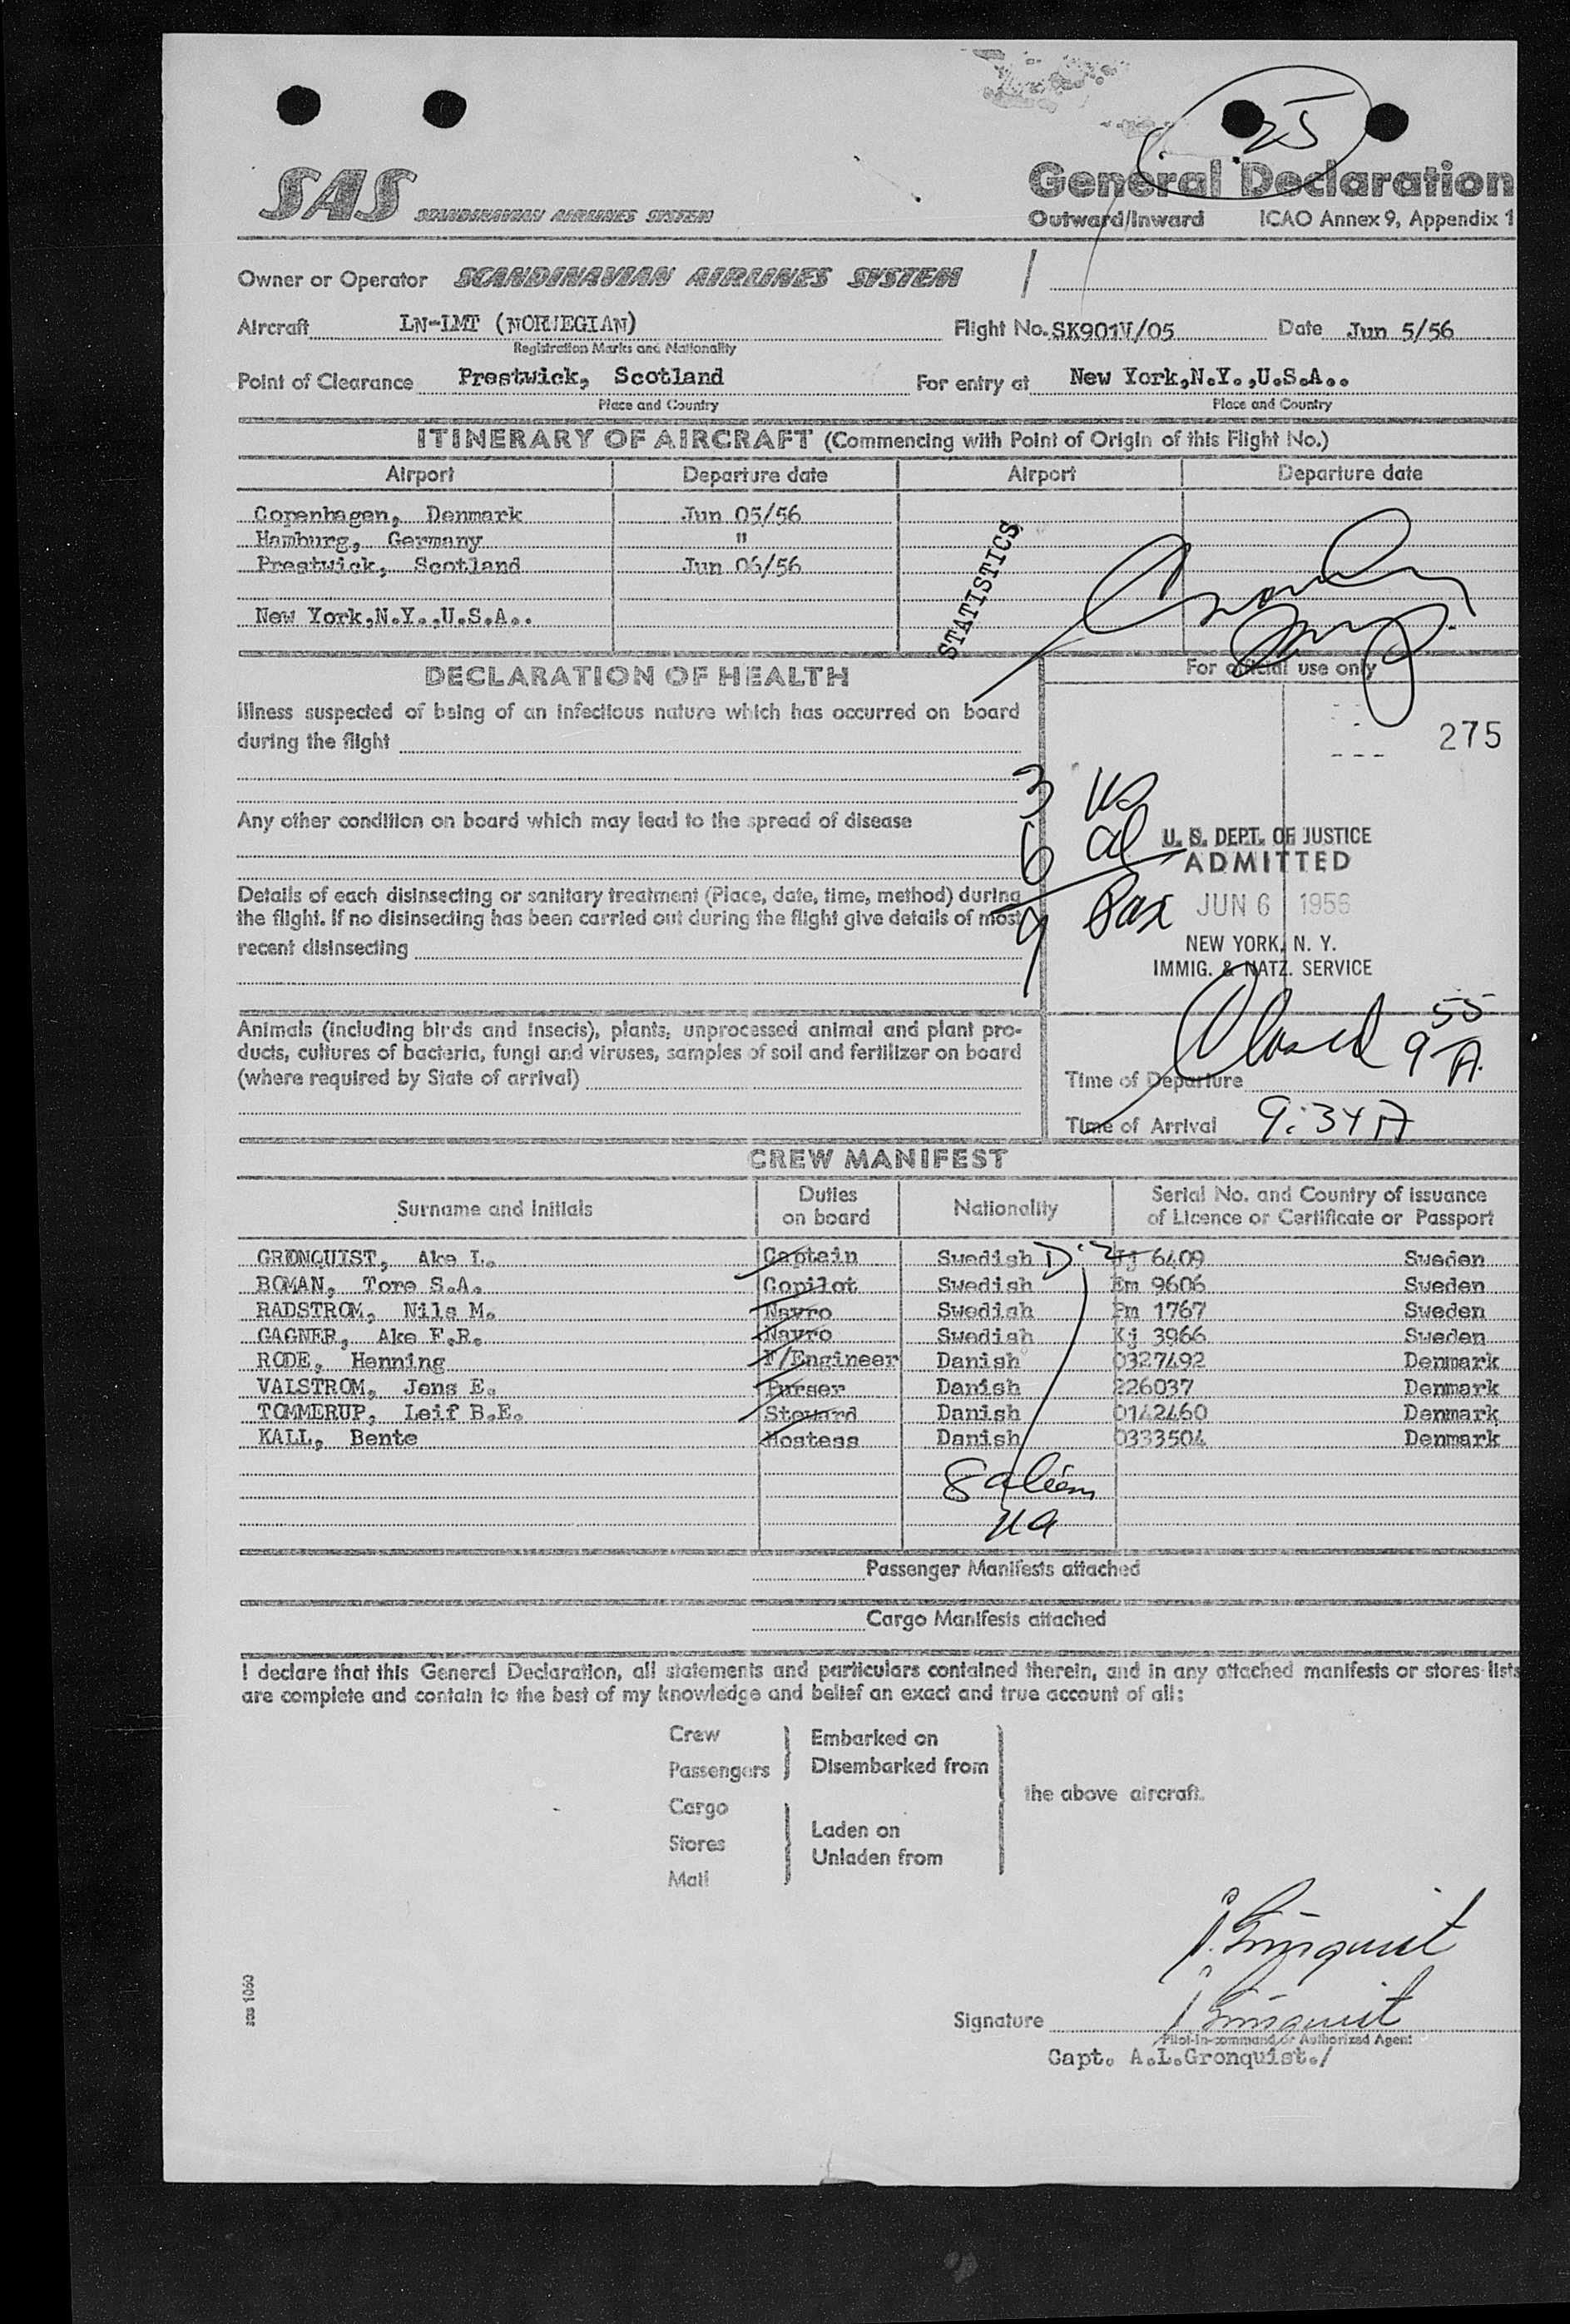 25
SAS SCANDINAVIAN AIRLINES SYSTEM
General Declaration
Outward/Inward ICAO Annex 9, Appendix 1
Owner or Operator SCANDINAVIAN AIRLINES SYSTEM
Aircraft LN-LMT (NORWEGIAN) Flight No. SK901V/05 Date Jun 5/56
Registration Marks and Nationality
Point of Clearance Prestwick, Scotland For entry at New York,N.Y.,U.S.A..
Place and Country Place and Country
ITINERARY OF AIRCRAFT (Commencing with Point of Origin of this Flight No.)
Airport Departure date Airport Departure date
Copenhagen, Denmark Jun 05/56
Hamburg, Germany "
Prestwick, Scotland Jun 06/56
New York,N.Y.,U.S.A..
STATISTICS
DECLARATION OF HEALTH
For official use only
Illness suspected of being of an infectious nature which has occurred on board
during the flight
275
3 US
Any other condition on board which may lead to the spread of disease
6 al
U. S. DEPT. OF JUSTICE
ADMITTED
Details of each disinsecting or sanitary treatment (Place, date, time, method) during
the flight. If no disinsecting has been carried out during the flight give details of most
recent disinsecting
9 Pax
JUN 6 1956
NEW YORK, N. Y.
IMMIG. & NATZ. SERVICE
Animals (including birds and insects), plants, unprocessed animal and plant pro-
ducts, cultures of bacteria, fungi and viruses, samples of soil and fertilizer on board
(where required by State of arrival)
Closed 9 55 A.
Time of Departure
Time of Arrival 9:34 A
CREW MANIFEST
Surname and Initials Duties on board Nationality Serial No. and Country of issuance of Licence or Certificate or Passport
GRONQUIST, Ake L. Captain Swedish D-2 Ij 6409 Sweden
BOMAN, Tore S.A. Copilot Swedish Em 9606 Sweden
RADSTROM, Nils M. Navro Swedish Pm 1767 Sweden
GAGNER, Ake F.R. Navro Swedish Kj 3966 Sweden
RODE, Henning F/Engineer Danish 0327492 Denmark
VALSTROM, Jens E. Purser Danish 226037 Denmark
TOMMERUP, Leif B.E. Steward Danish 0142460 Denmark
KALL, Bente Hostess Danish 0333504 Denmark
8 aliens
Passenger Manifests attached
Cargo Manifests attached
I declare that this General Declaration, all statements and particulars contained therein, and in any attached manifests or stores lists
are complete and contain to the best of my knowledge and belief an exact and true account of all:
Crew Embarked on
Passengers Disembarked from
the above aircraft.
Cargo
Stores Laden on
Unladen from
Mail
A. Grönquist
sas 1060
Signature A Grönquist
Pilot-in-command or Authorized Agent
Capt. A.L.Gronquist./